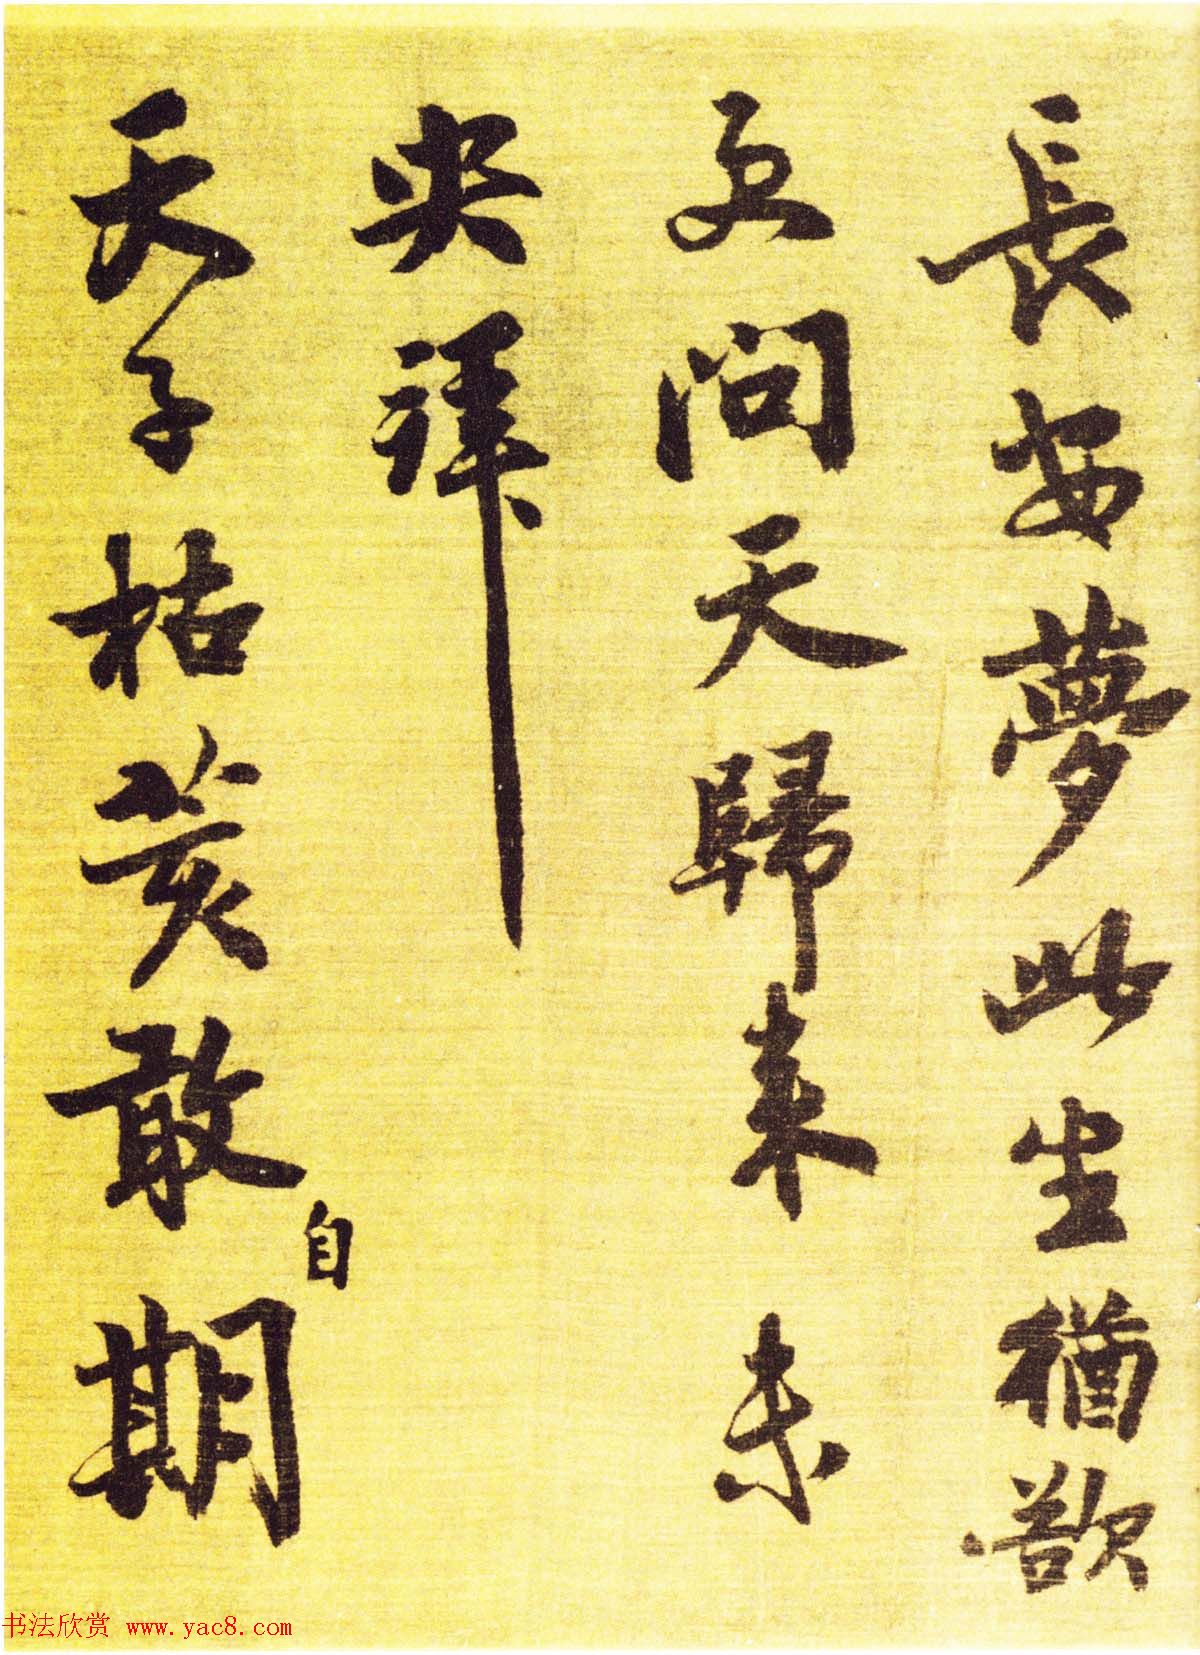 長安夢此生猶欲
更問天歸来未
央拜
天子枯荄敢自期
书法欣赏 www.yac8.com